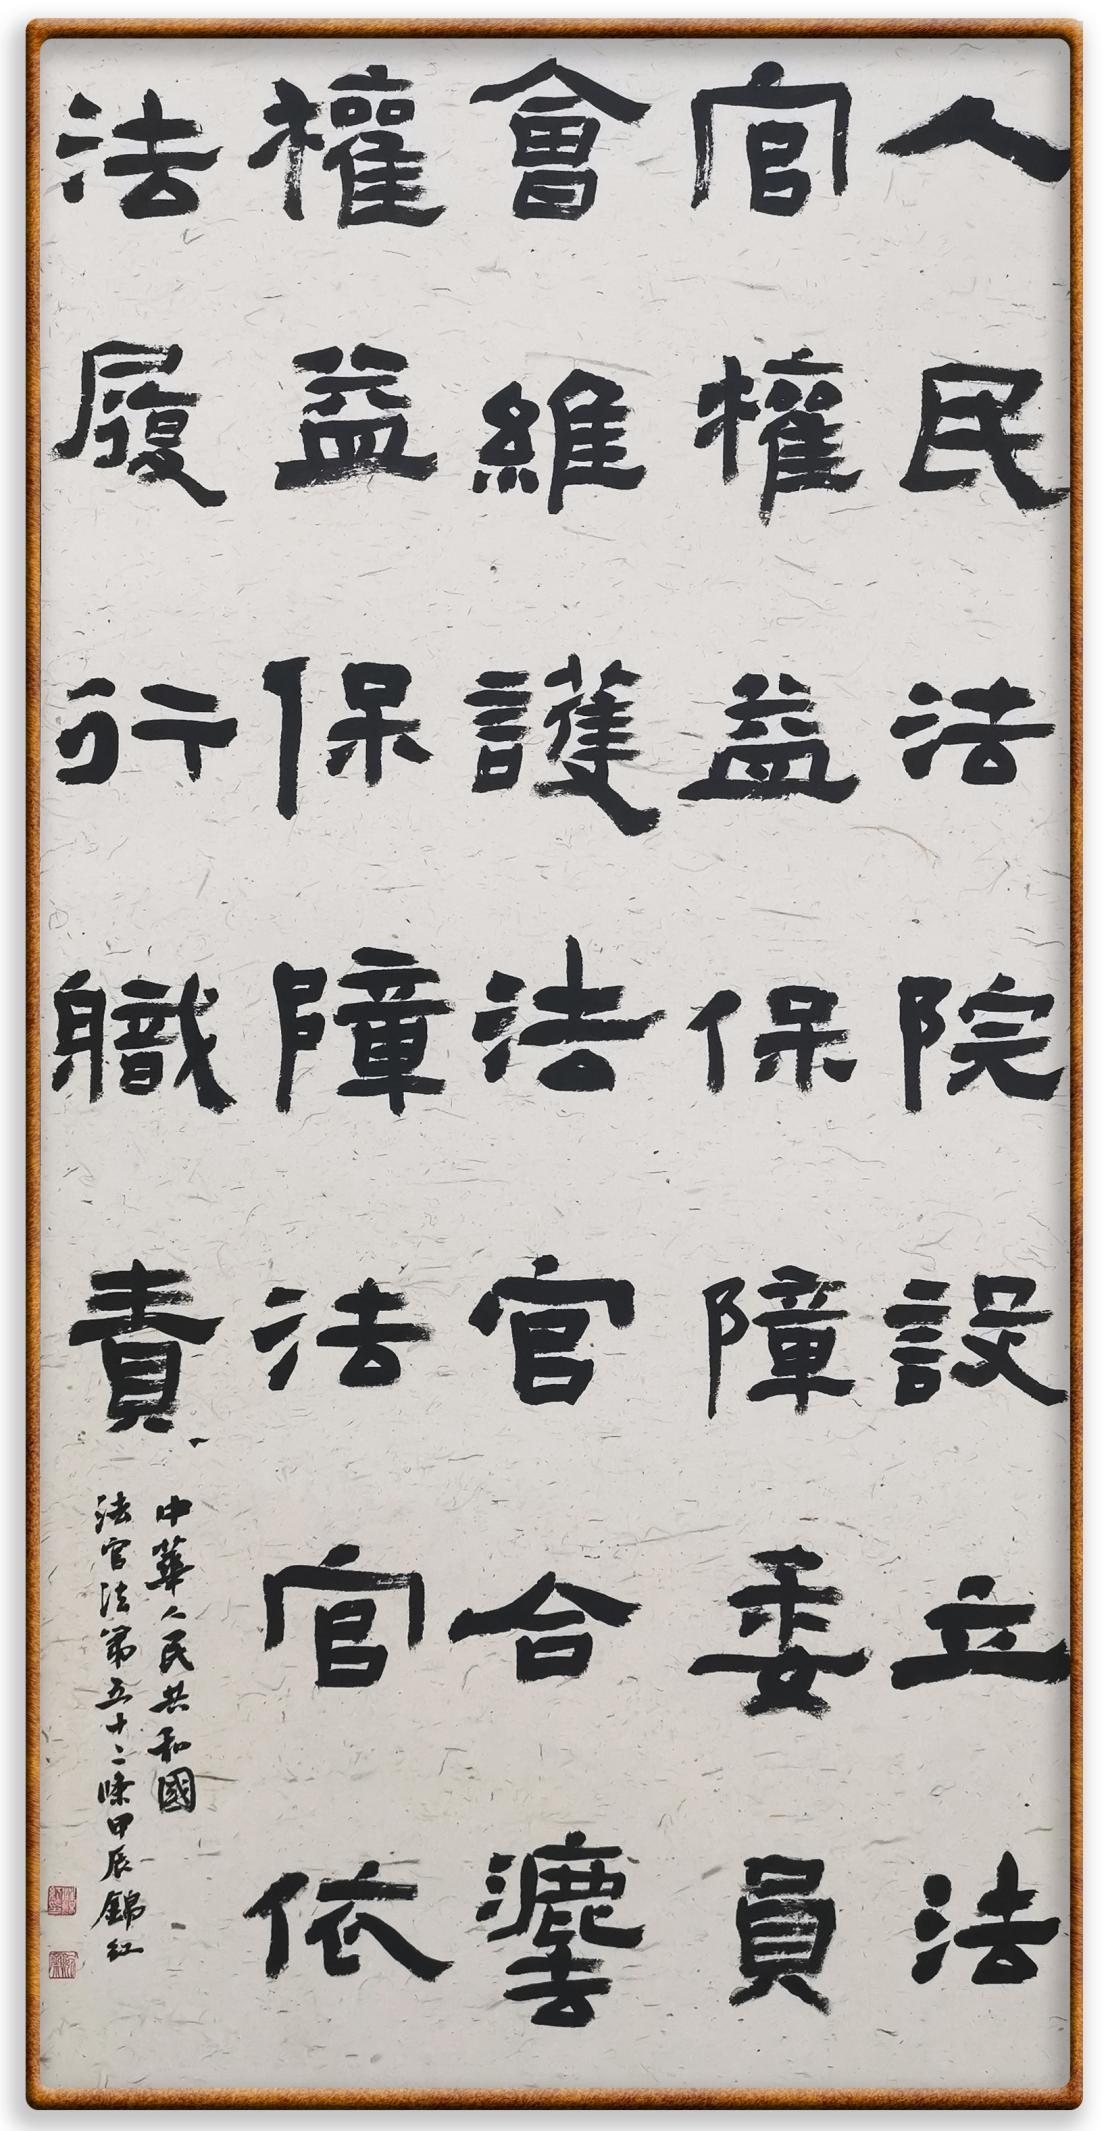 人民法院設立法
官權益保障委員
會維護法官合灋
權益保障法官依
法履行職責
中華人民共和國
法官法第五十二條甲辰錦紅